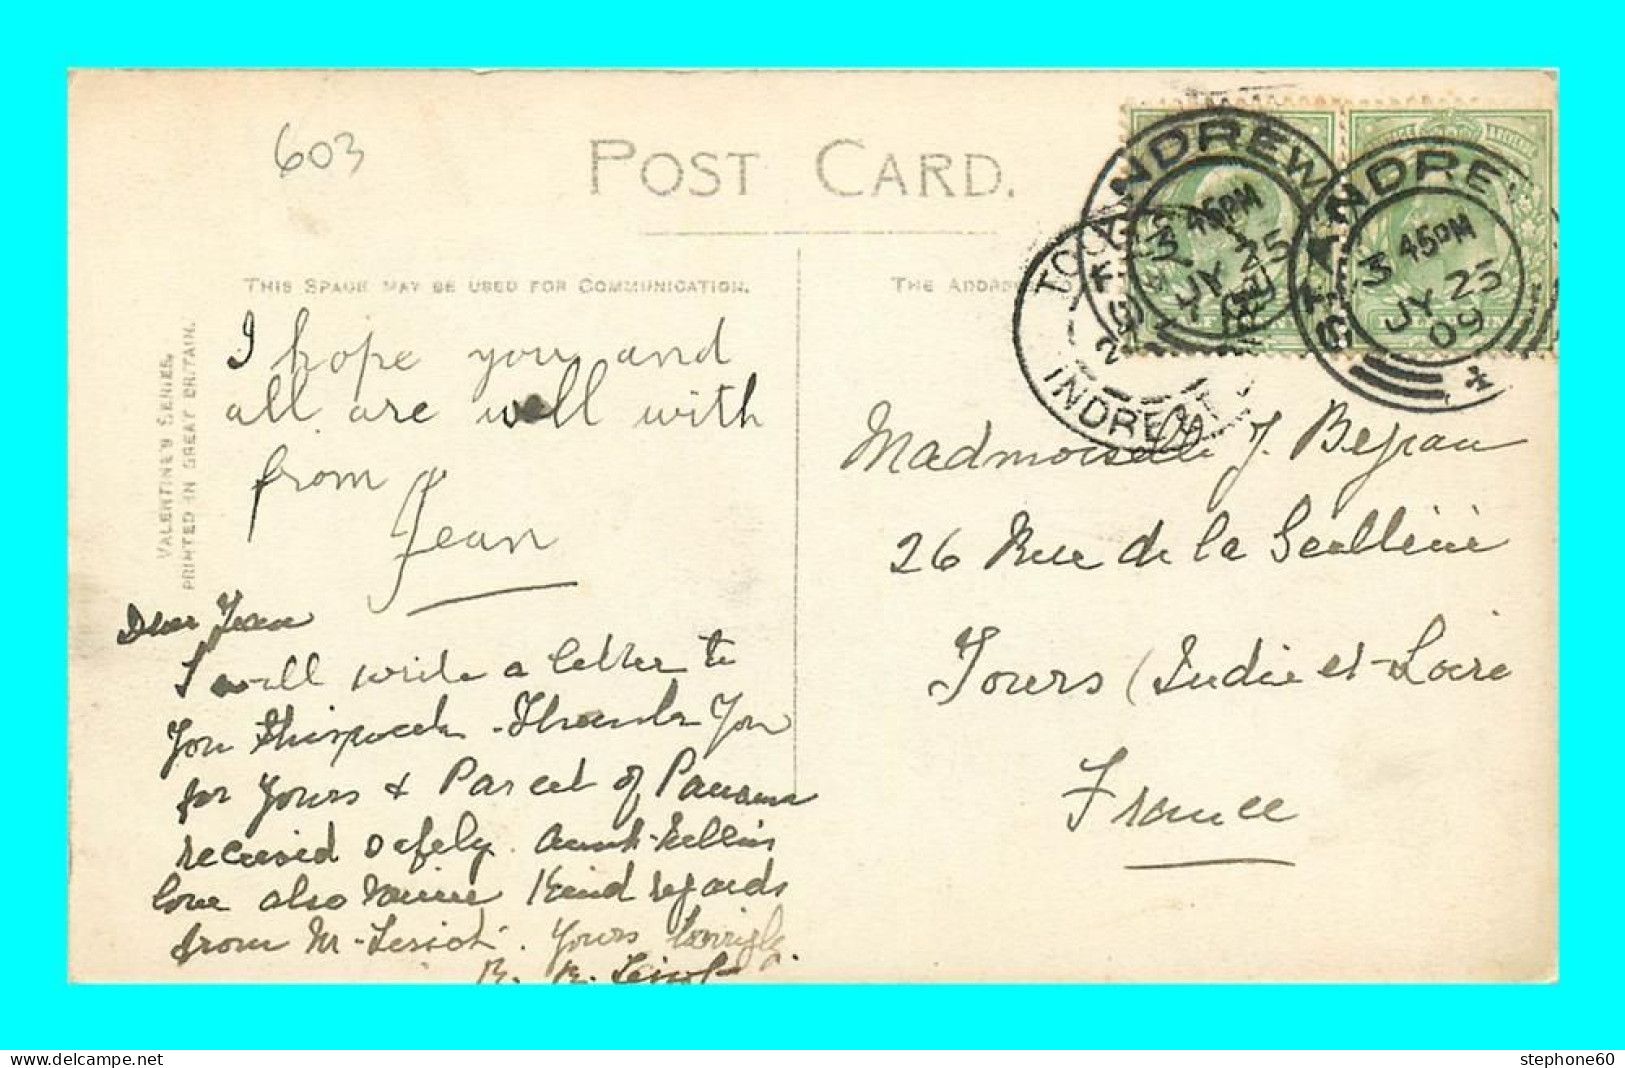 603
POST CARD.
THIS SPACE MAY BE USED FOR COMMUNICATION.
THE ADDRESS
VALENTINE'S SERIES.
PRINTED IN GREAT BRITAIN.
ST ANDREWS
3 45PM
JY 25
09
ST ANDREWS
3 45PM
JY 25
09
INDRE ET
I hope you and
all are well with
from
Jean
Dear Jean
I will write a letter to
You this week - Thanks You
for Yours & Parcel of Panama
received safely. Aunt
love also mine Kind regards
from M. Yours
Madmoiselle J. Bejeau
26 Rue de la
Tours (Indie et-Loire
France
stephone60